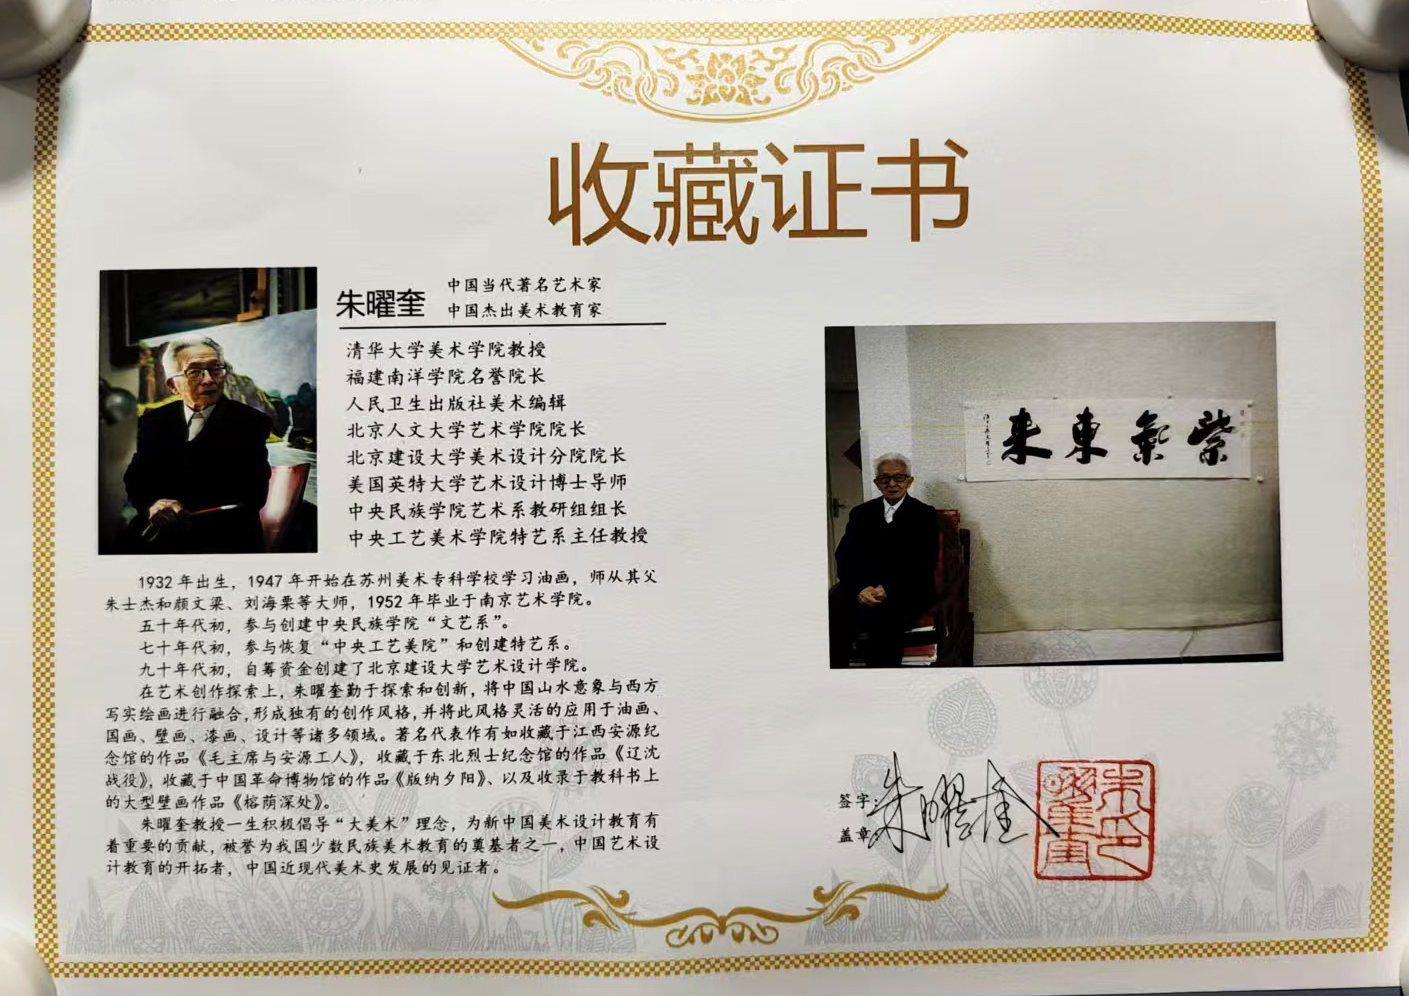 收藏证书
朱曜奎
中国当代著名艺术家
中国杰出美术教育家
清华大学美术学院教授
福建南洋学院名誉院长
人民卫生出版社美术编辑
北京人文大学艺术学院院长
北京建设大学美术设计分院院长
美国英特大学艺术设计博士导师
中央民族学院艺术系教研组组长
中央工艺美术学院特艺系主任教授
1932年出生，1947年开始在苏州美术专科学校学习油画，师从其父
朱士杰和颜文梁、刘海粟等大师，1952年毕业于南京艺术学院。
五十年代初，参与创建中央民族学院“文艺系”。
七十年代初，参与恢复“中央工艺美院”和创建特艺系。
九十年代初，自筹资金创建了北京建设大学艺术设计学院。
在艺术创作探索上，朱曜奎勤于探索和创新，将中国山水意象与西方
写实绘画进行融合，形成独有的创作风格，并将此风格灵活的应用于油画、
国画、壁画、漆画、设计等诸多领域。著名代表作有如收藏于江西安源纪
念馆的作品《毛主席与安源工人》，收藏于东北烈士纪念馆的作品《辽沈
战役》，收藏于中国革命博物馆的作品《版纳夕阳》、以及收录于教科书上
的大型壁画作品《榕荫深处》。
朱曜奎教授一生积极倡导“大美术”理念，为新中国美术设计教育有
着重要的贡献，被誉为我国少数民族美术教育的奠基者之一，中国艺术设
计教育的开拓者，中国近现代美术史发展的见证者。
紫氣東来
签字：朱曜奎
盖章